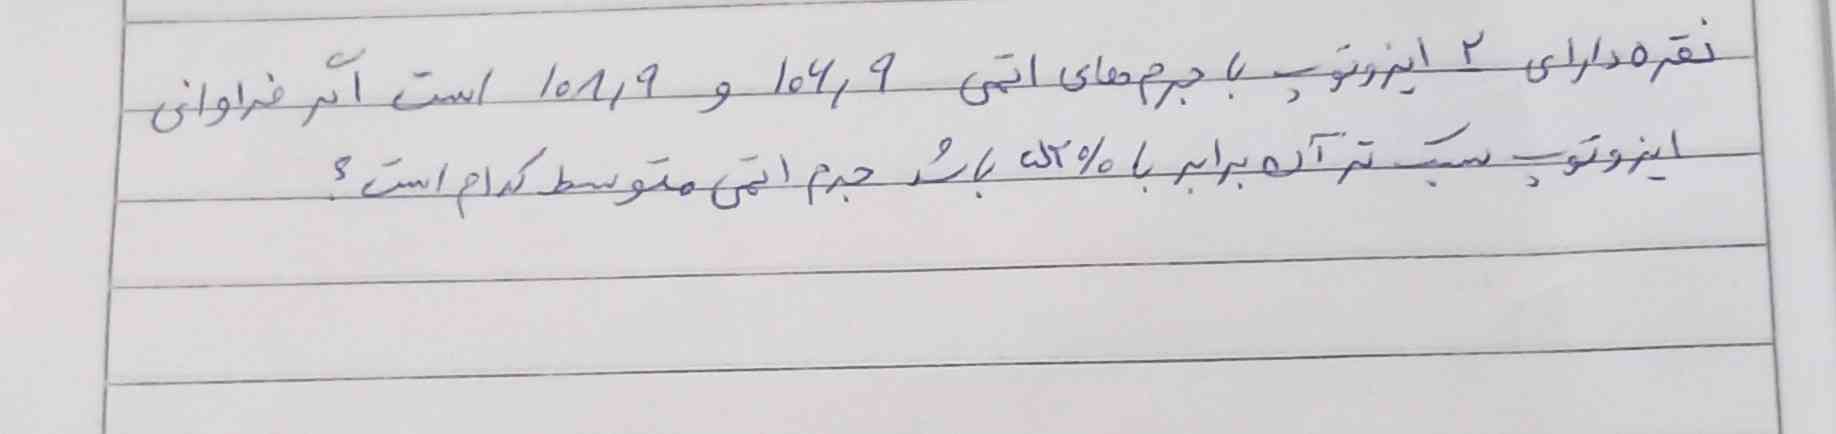 نقره دارای ۲ ایزوتوپ با جرم های اتمی ۱۰۶,۹ و ۱۰۸,۹ است اگر فراوانی
ایزوتوپ سبک تر آن برابر با ۵۲% باشد جرم اتمی متوسط کدام است؟